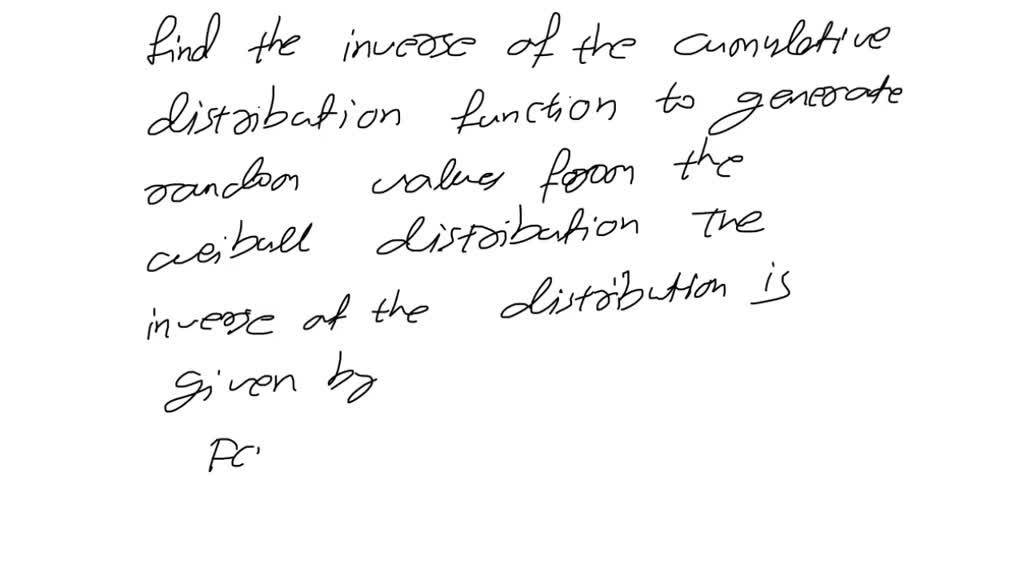 find the inverse of the cumulative
distribution function to generate
random values from the
weiball distribution The
inverse of the distribution is
given by
PC